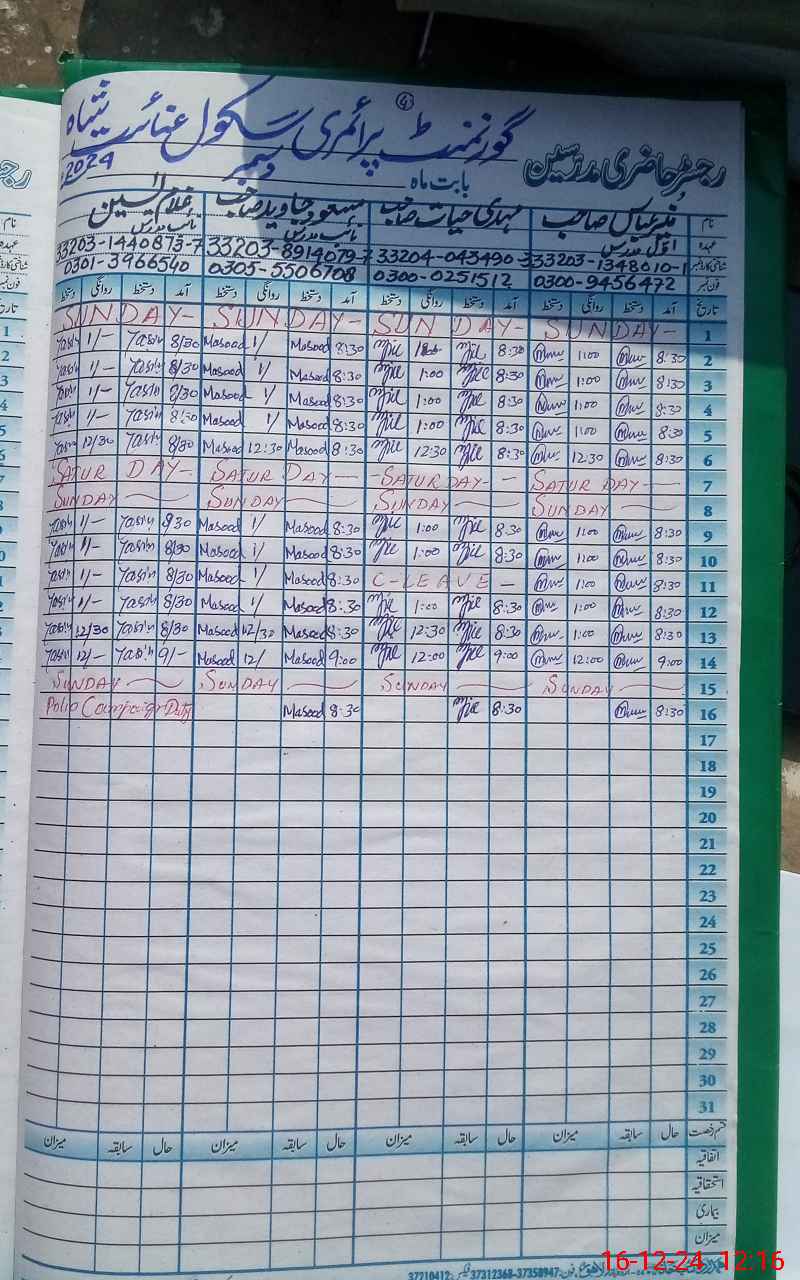 ④
گورنمنٹ پرائمری سکول عنائت شاہ
رجسٹر حاضری مدرسین
بابت ماہ دسمبر 2024
نام
مہدی حیات صاحب مسعود جاوید صاحب
عہدہ اول مدرس نائب مدرس نائب مدرس
33203-1348010-1 33204-043490-3 33203-8914079-7 33203-1440873-7
فون نمبر 0300-9456472 0300-0251512 0305-5506708 0301-3966540
تاریخ آمد دستخط روانگی دستخط آمد دستخط روانگی دستخط آمد دستخط روانگی دستخط آمد دستخط روانگی دستخط
SUNDAY- SUNDAY- SUN DAY- SUNDAY- 1
Yasin 1/- Yasin 8/30 Masood 1/ Masood 8:30 8:30 1:00 8:30 2
Yasin 1/- Yasin 8/30 Masood 1/ Masood 8:30 1:00 8:30 1:00 8:30 3
Yasin 1/- Yasin 8/30 Masood 1/ Masood 8:30 1:00 8:30 1:00 8:30 4
Yasin 1/- Yasin 8:30 Masood 1/ Masood 8:30 1:00 8:30 1:00 8:30 5
Yasin 12/30 Yasin 8/30 Masood 12:30 Masood 8:30 12:30 8:30 12:30 8:30 6
SATUR DAY- SATUR DAY- -SATURDAY- SATUR DAY- 7
SUNDAY SUNDAY SUNDAY SUNDAY 8
Yasin 1/- Yasin 8/30 Masood 1/ Masood 8:30 1:00 8:30 1:00 8:30 9
Yasin 1/- Yasin 8/30 Masood 1/ Masood 8:30 1:00 8:30 1:00 8:30 10
Yasin 1/- Yasin 8/30 Masood 1/ Masood 8:30 C-LEAVE - 1:00 8:30 11
Yasin 1/- Yasin 8/30 Masood 1/ Masood 8:30 1:00 8:30 1:00 8:30 12
Yasin 12/30 Yasin 8/30 Masood 12/30 Masood 8:30 12:30 8:30 1:00 8:30 13
Yasin 12/- Yasin 9/- Masood 12/ Masood 9:00 12:00 9:00 12:00 9:00 14
SUNDAY SUNDAY SUNDAY SUNDAY 15
Polio Campaign Duty Masood 8:30 8:30 8:30 16
17
18
19
20
21
22
23
24
25
26
27
28
29
30
31
قسم رخصت حال سابقہ میزان حال سابقہ میزان حال سابقہ میزان حال سابقہ میزان
اتفاقیہ
استحقاقیہ
بیماری
میزان
فون:37358947-37312368 فیکس:37210412
16-12-24 12:16